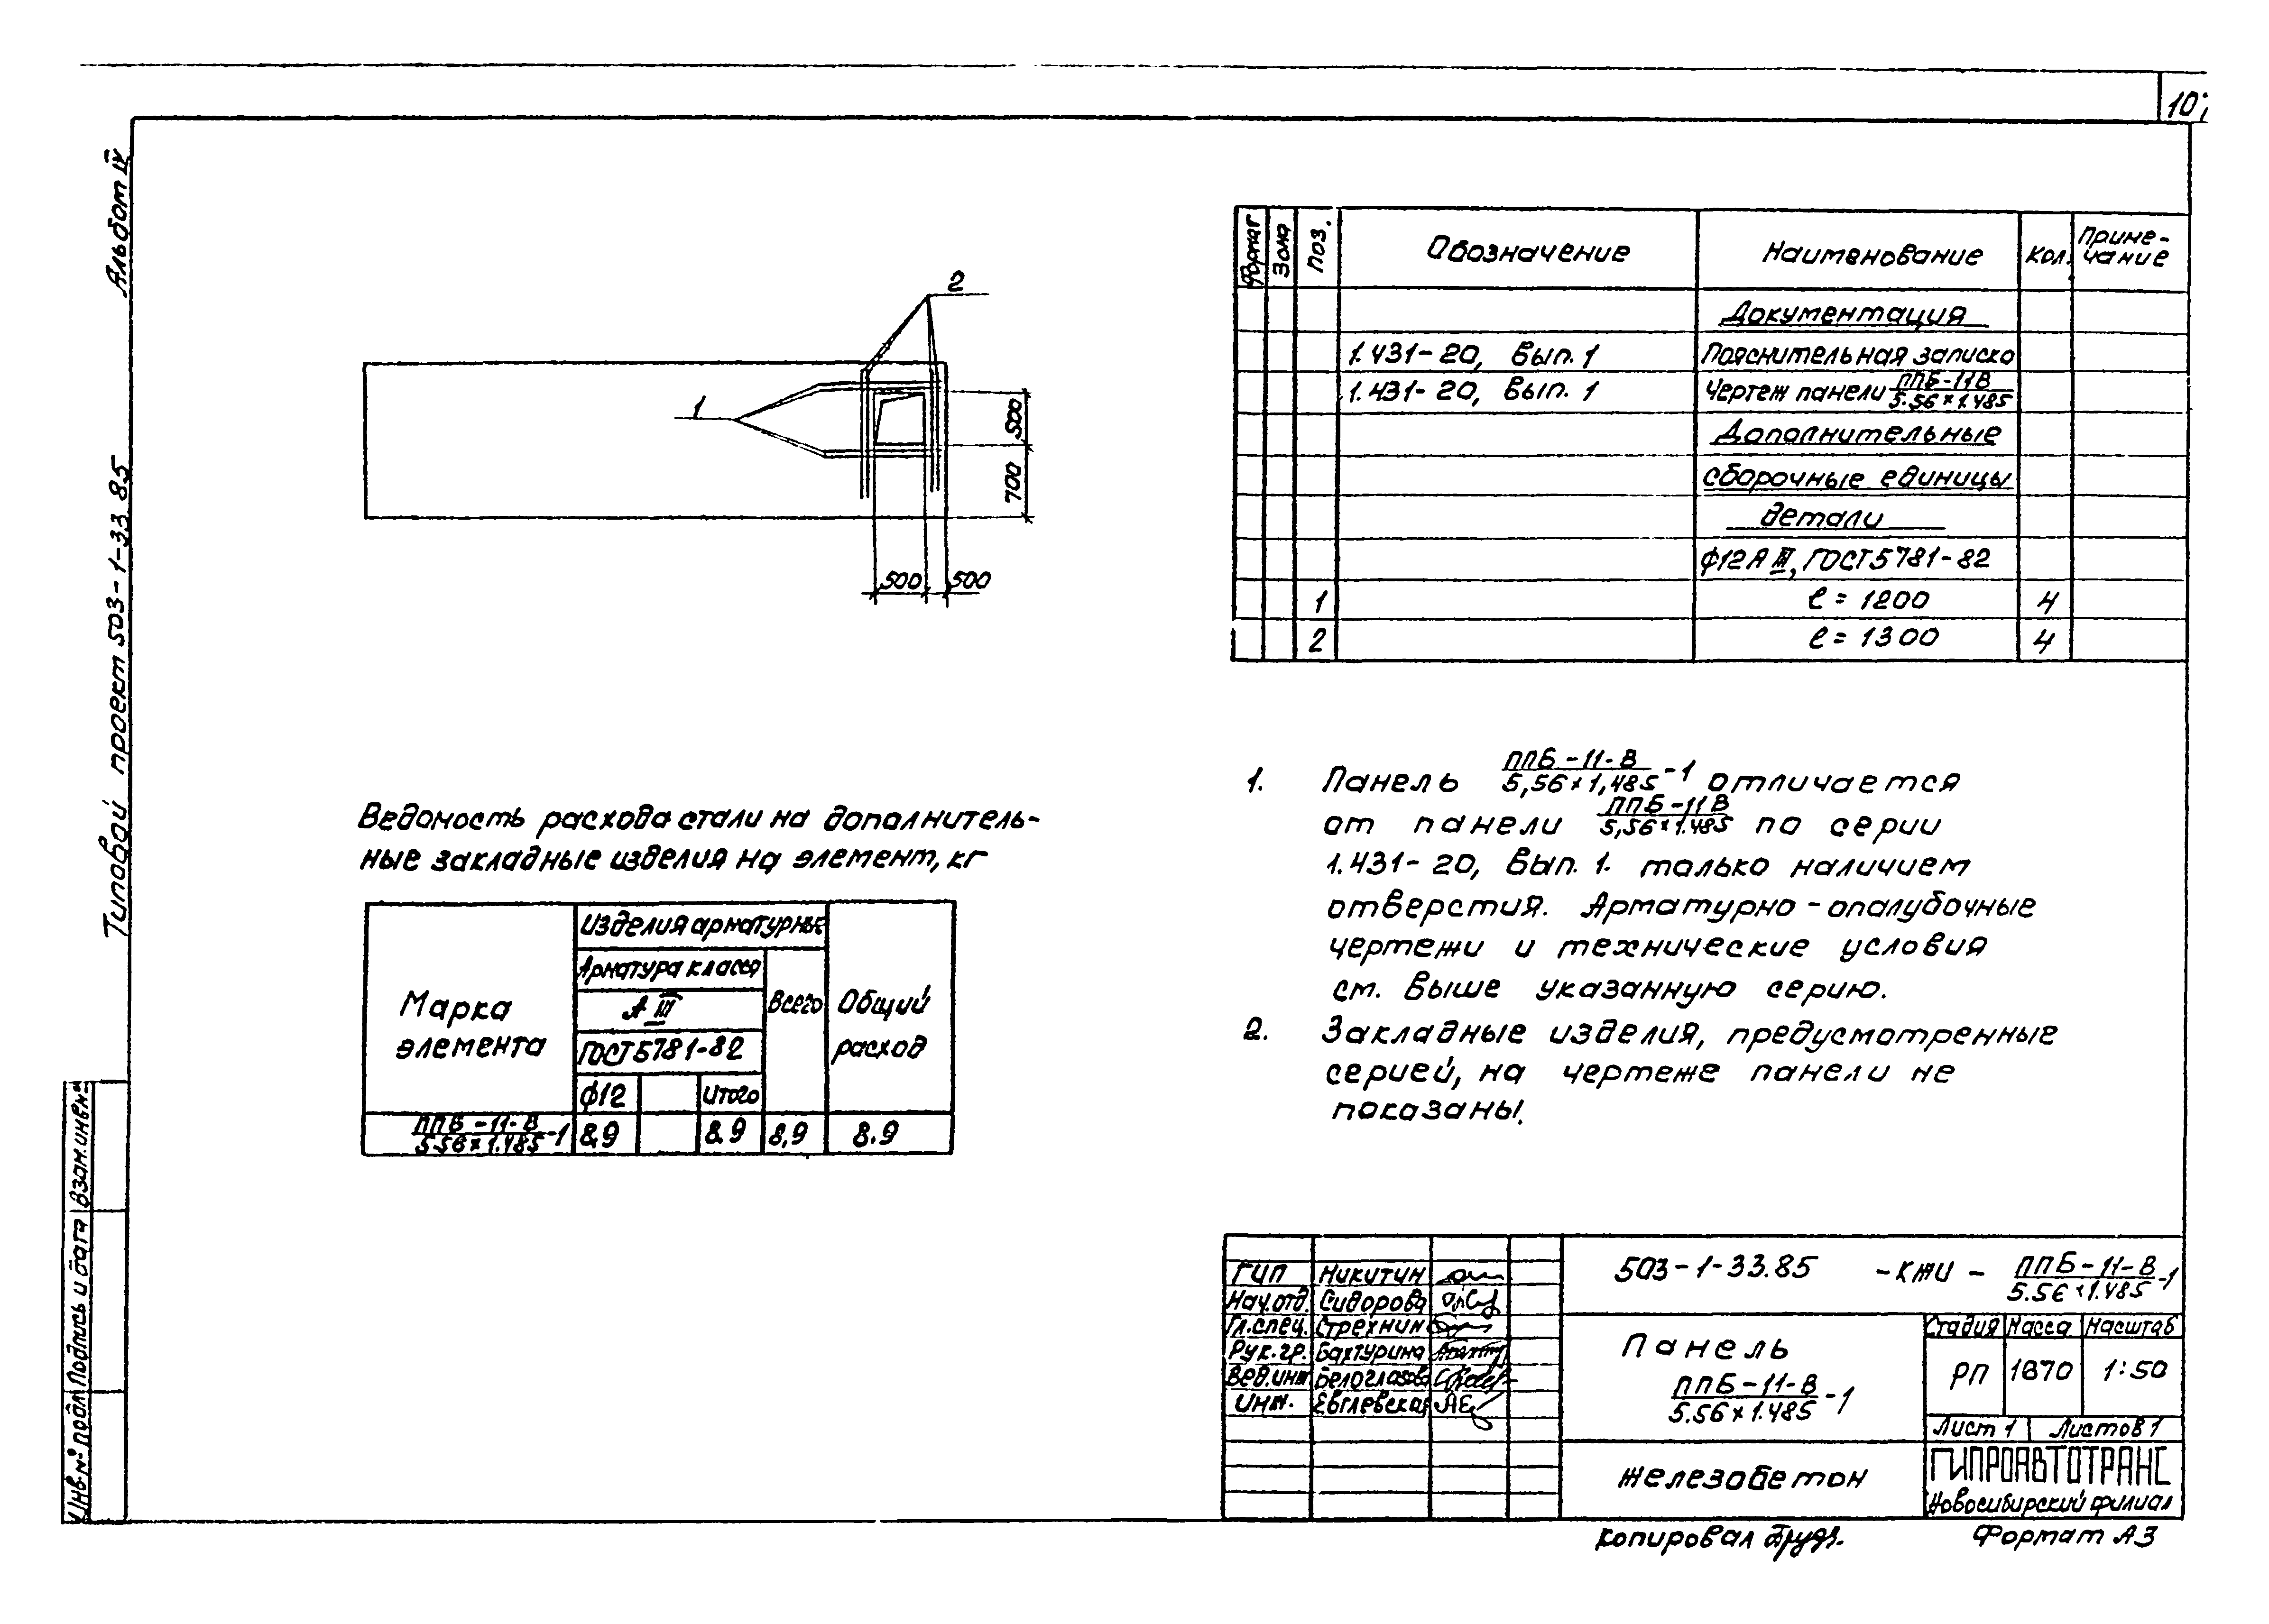 107
Альбом IV
Типовой проект 503-1-33.85
Взам.инв.№
Подпись и дата
Инв.№ подл
2
1
500
700
500 500
Формат Зона Поз. Обозначение Наименование Кол. Приме-
чание
Документация
1.431-20, Вып. 1 Пояснительная записка
1.431-20, Вып. 1 Чертеж панели ППБ-11В
5.56×1.485
Дополнительные
сборочные единицы
детали
ф12АIII, ГОСТ5781-82
1 ℓ = 1200 4
2 ℓ = 1300 4
Ведомость расхода стали на дополнитель-
ные закладные изделия на элемент, кг
Марка
элемента
Изделия арматурные
Арматура класса
А III
ГОСТ5781-82
ф12 Итого
Всего
Общий
расход
ППБ-11-В
5.56×1.485 -1 8,9 8.9 8,9 8.9
1. Панель ППБ-11-В
5,56×1,485 -1 отличается
от панели ППБ-11В
5,56×1.485 по серии
1.431-20, Вып. 1. только наличием
отверстия. Арматурно-опалубочные
чертежи и технические условия
см. выше указанную серию.
2. Закладные изделия, предусмотренные
серией, на чертеже панели не
показаны.
ГИП Никитин
Нач.отд. Сидорова
Гл.спец. Стрехнин
Рук.гр. Бахтурина
Вед.инж Белоглазова
Инж. Евглевская
503-1-33.85 -КЖИ- ППБ-11-В
5.56×1.485 -1
Панель
ППБ-11-В
5.56×1.485 -1
Стадия Масса Масштаб
РП 1870 1:50
Лист 1 Листов 1
Железобетон
ГИПРОАВТОТРАНС
Новосибирский филиал
Копировал
Формат А3